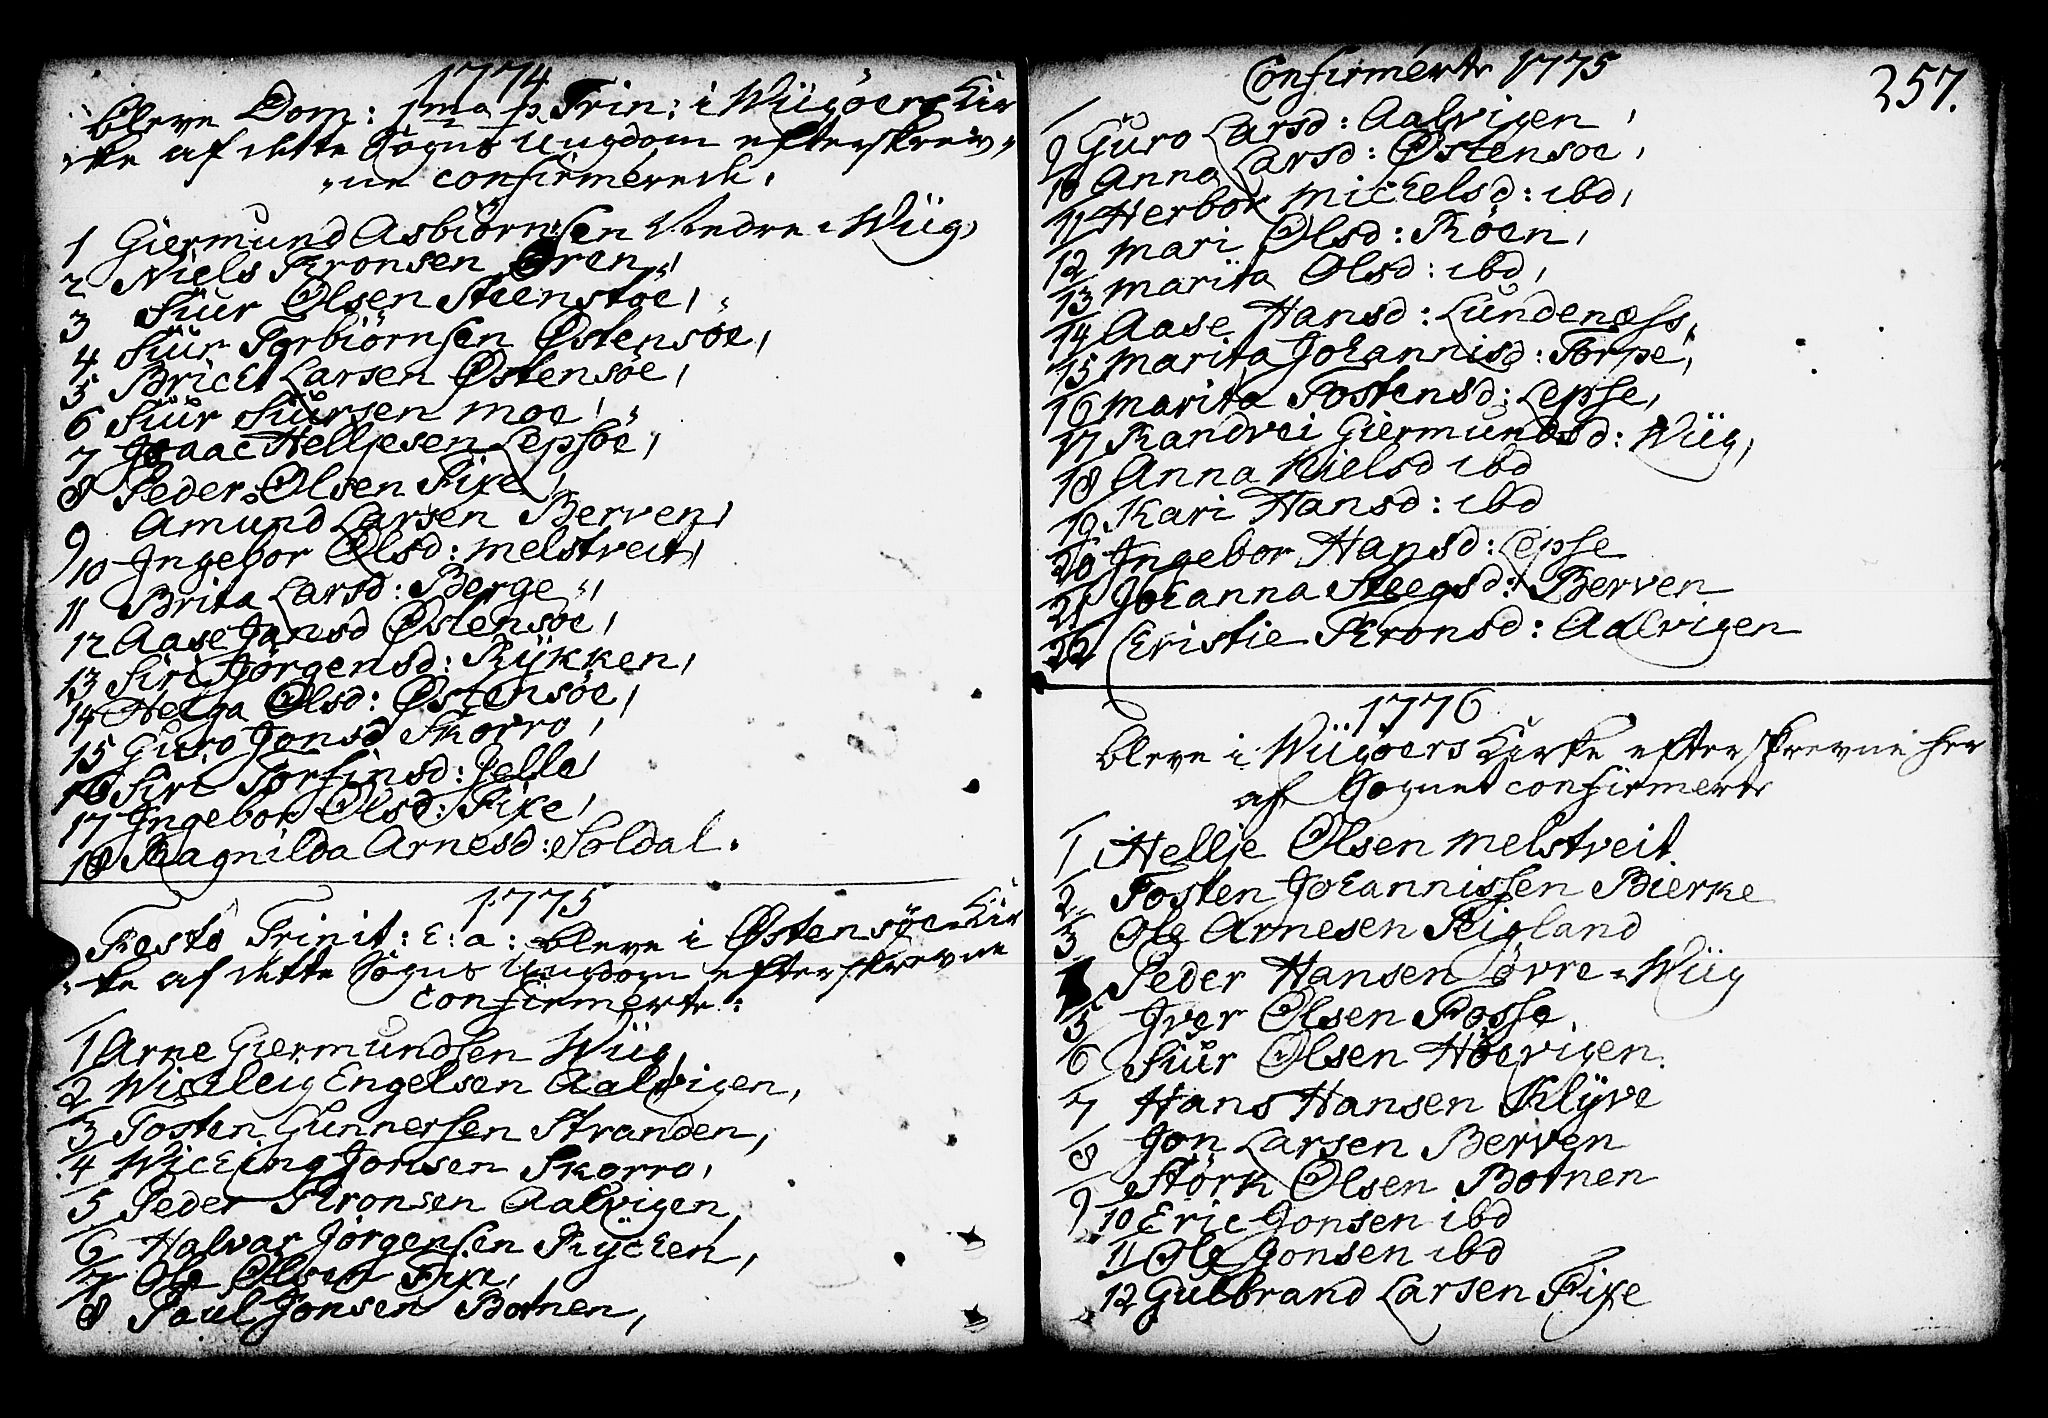 1774
bleve Dom: 1ma p. Trin: i Wiigöers Kir
„ke af dette Sogns Ungdom efterskrev„
„ne confirmerede.
1 Giermund Asbiörnsen Nedre-Wiig,
2 Niels Aronsen Øren,
3 Siur Olsen Steenstöe,
4 Siur Torbiörnsen Østensöe,
5 Brickt Larsen Østensöe,
6 Siur Siursen Moe,
7 Isaac Helljesen Lepsöe,
8 Peder Olsen Fixe,
9 Amund Larsen Berven,
10 Ingebor Olsd: Melstveit,
11 Brita Larsd: Berge,
12 Aase Jansd Østensöe,
13 Siri Jörgensd: Rykken,
14 Helga Olsd: Østensöe,
15 Guro Jonsd Skorro,
16 Siri Torfinsd: Jelle,
17 Ingebor Olsd: Fixe,
18 Ragnilda Arnesd: Soldal.
1775
Festo Trinit: E: a: bleve i Østensöe Kir
„ke af dette Sogns Ungdom efterskrevne
confirmerte:
1 Arne Giermundsen Wiig,
2 Wickleig Engelsen Aalvigen,
3 Tosten Gunnersen Stranden,
4 Wicking Jonsen Skorro,
5 Peder Aronsen Aalvigen,
6 Halvar Jörgensen Rycken,
7 Ole Olsen Fixe,
8 Paul Jonsen Botnen,
257.
Confirmerte 1775
9 Guro Larsd: Aalvigen,
10 Anna Larsd: Østensoe,
11 Herbor Mickelsd: ibd,
12 Mari Olsd: Röen,
13 Marita Olsd: ibd,
14 Aase Hansd: Lundenæss,
15 Marita Johannisd: Torpe,
16 Marita Tostensd: Lepse,
17 Randvei Giermundsd: Wiig,
18 Anna Nielsd ibd
19 Kari Hansd: ibd
20 Ingebor Hansd: Lepse
21 Johanna Steegsd: Berven
22 Christie Aronsd: Aalvigen
1776
bleve i Wiigöers Kirke efterskrevne her
af Sognet confirmerte
1 Hellje Olsen Melstveit
2 Tosten Johannissen Bierke
3 Ole Arnesen Rigland
4 Peder Hansen Övre-Wiig
5 Iver Olsen Fosse,
6 Siur Olsen Höevigen.
7 Hans Hansen Klyve
8 Jon Larsen Berven
9 Störk Olsen Botnen
10 Eric Jonsen ibd
11 Ole Jonsen ibd
12 Gulbrand Larsen Fixe